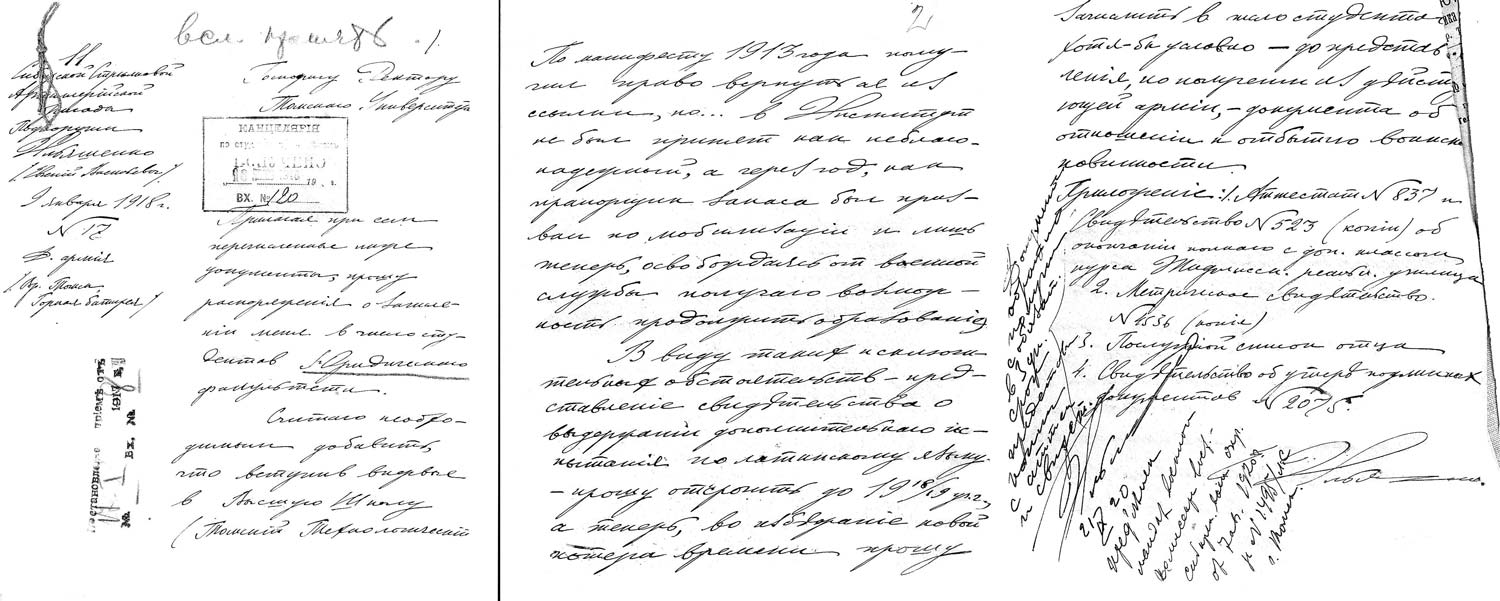 всл.
11
Сибирской Стрелковой
Артиллерийской
Подпоручик
Ильяшенко
9 января 1918 г.
№ 17
Д. армия
Горная батарея
Господину Ректору
Томскаго Университета
КАНЦЕЛЯРІЯ
ВХ. № 120
Прилагая при сем
перечисленные ниже
документы, прошу
распоряжения о зачисле-
нiи меня в число сту-
дентов Юридическаго
факультета.
Считаю необхо-
димым добавить,
что вступив впервые
в Высшую Школу
(Томский Технологический
1918
Вх. №
№
2
По манифесту 1913 года полу-
чил право вернуться из
ссылки, но... в Институт
не был принят как неблаго-
надежный, а через год, как
прапорщик запаса был приз-
ван по мобилизации и лишь
теперь, освобождаясь от военной
службы получаю возмож-
ность продолжить образованiе.
В виду таких исключи-
тельных обстоятельств – пред-
ставленiе свидѣтельства о
выдержанiи дополнительнаго ис-
пытанiя по латинскому языку
– прошу отсрочить до 1918/19 уч. г.,
а теперь, во избѣжанiе новой
потери времени прошу
зачислить в число студентов
хотя-бы условно – до представ
ленiя, по полученiи из дѣйств
ующей армiи, – документа об
отношенiи к отбытiю воинск
повинности.
Приложенiе: 1. Аттестат № 837 и
Свидѣтельство № 523 (копiи) об
окончании полнаго с доп. классом
курса реальн. училища
2. Метрическое свидѣтельство.
№ 1536 (копiя)
3. Послужной список отца
4. Свидѣтельство об утере подлинных
документов № 2075.
21/IX 20